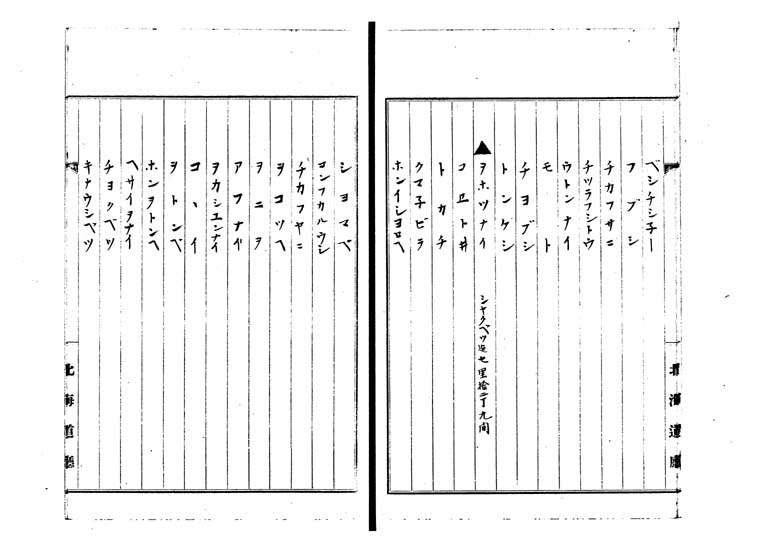 ベシチシ子ー
フブシ
チカフサニ
チツラフシトウ
ウトンナイ
モト
チヨブシ
トンゲシ
▲ヲホツナイ シヤクベツ迄七里拾二丁九間
コヱト井
トカチ
クマ子ビラ
ホンイシヨロヘ
北海道廳
シヨマベ
コンフカルウシ
チカフヤニ
ヲコツヘ
ヲニヲ
アフナイ
ヲカシエンナイ
コヽイ
ヲトンベ
ホンヲトンヘ
ヘサイヲナイ
チヨクベツ
キナウシベツ
北海道廳